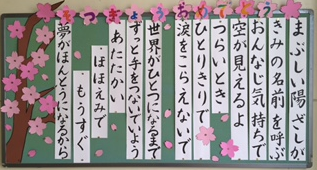 そつぎょうおめでとう
まぶしい陽ざしが
きみの名前を呼ぶ
おんなじ気持ちで
空が見えるよ
つらいとき
ひとりきりで
涙をこらえないで
世界がひとつになるまで
ずっと手をつないでいよう
あたたかい
ほほえみで
もうすぐ
夢がほんとうになるから